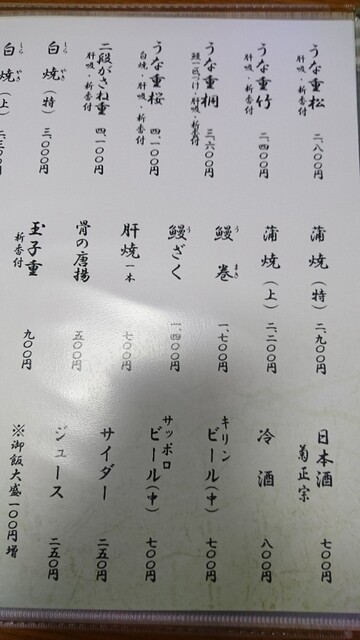 うな重松 二、八〇〇円
肝吸・新香付
うな重竹 二、四〇〇円
肝吸・新香付
うな重桐 三、六〇〇円
鰻一匹つけ・肝吸・新香付
うな重桜 四、一〇〇円
白焼・肝吸・新香付
二段がさね重 四、一〇〇円
肝吸・新香付
白焼(特) 三、〇〇〇円
しら やき
白焼(上) 二、三〇〇円
しら やき
蒲焼(特) 二、九〇〇円
蒲焼(上) 二、二〇〇円
鰻巻 一、七〇〇円
う まき
鰻ざく 一、四〇〇円
う
肝焼 一本 七〇〇円
骨の唐揚 五〇〇円
玉子重 九〇〇円
新香付
日本酒 七〇〇円
菊正宗
冷酒 八〇〇円
キリン
ビール(中) 七〇〇円
サッポロ
ビール(中) 七〇〇円
サイダー 二五〇円
ジュース 二五〇円
※御飯大盛一〇〇円増